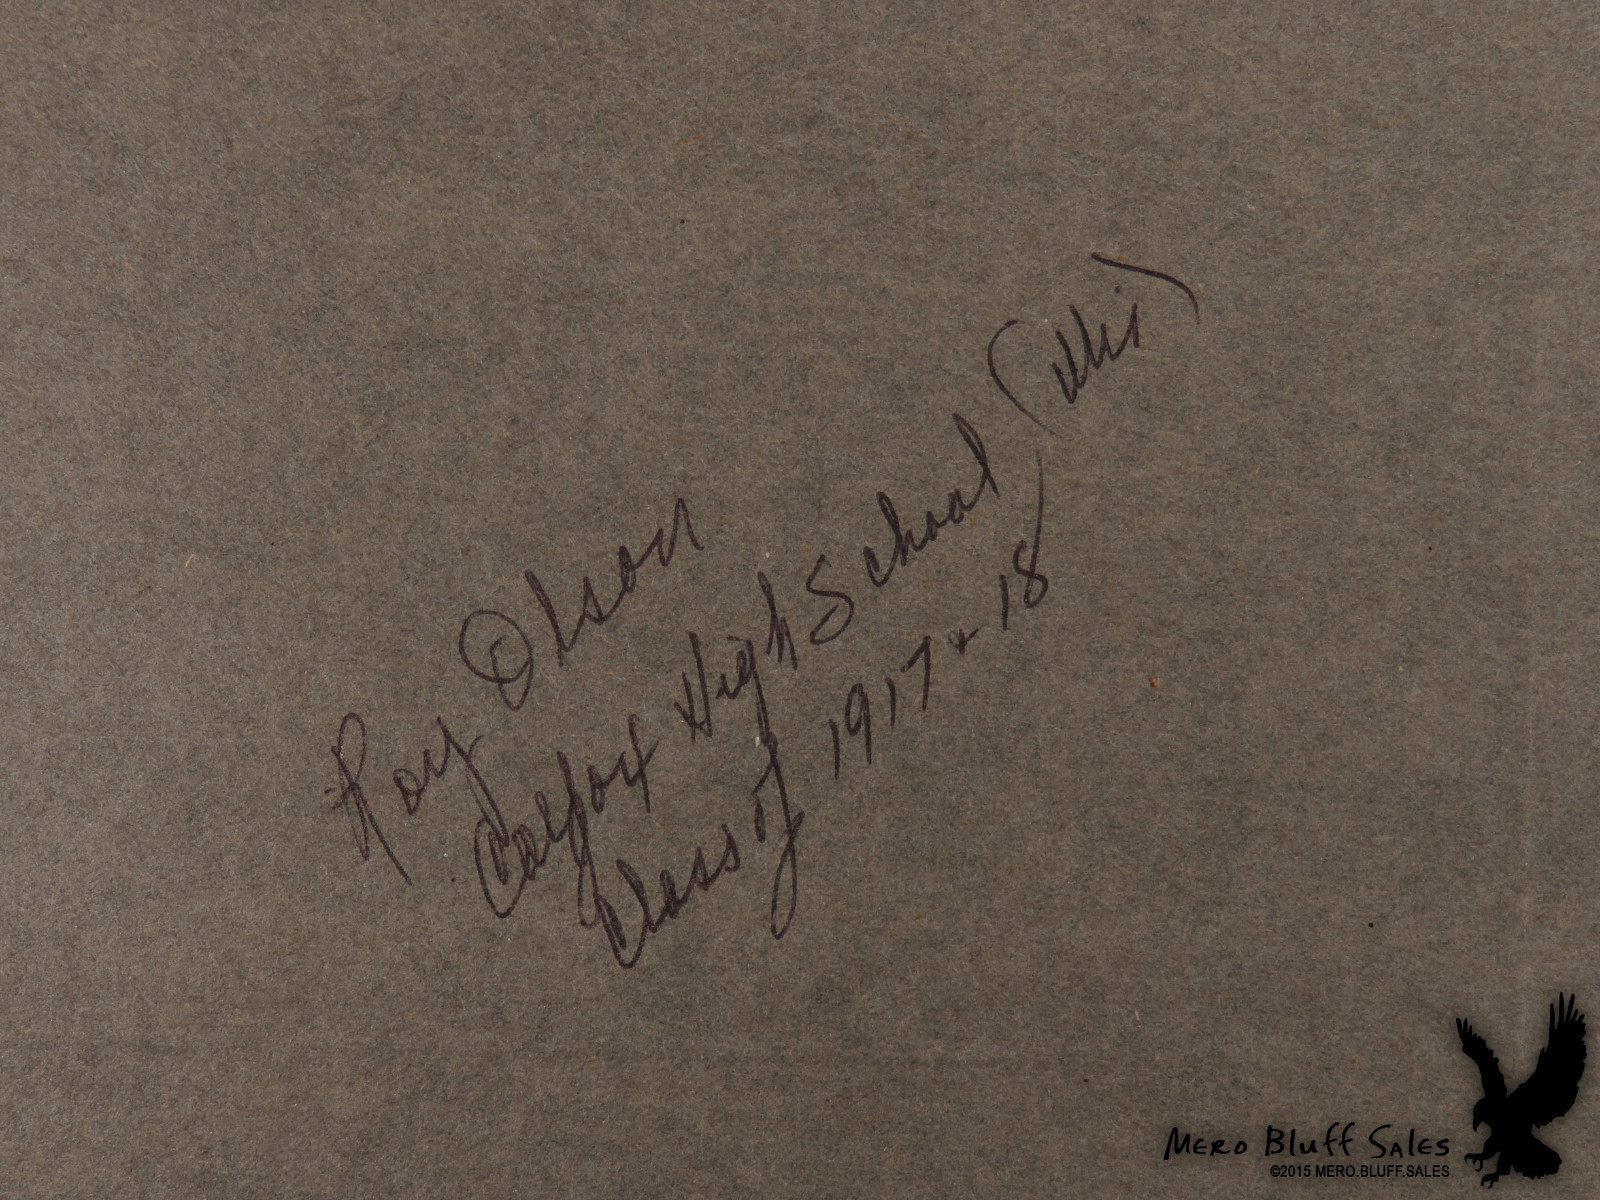 Roy Olson
Colfax High School (Wis)
Class of 1917 + 18
Mero Bluff Sales
©2015 MERO.BLUFF.SALES